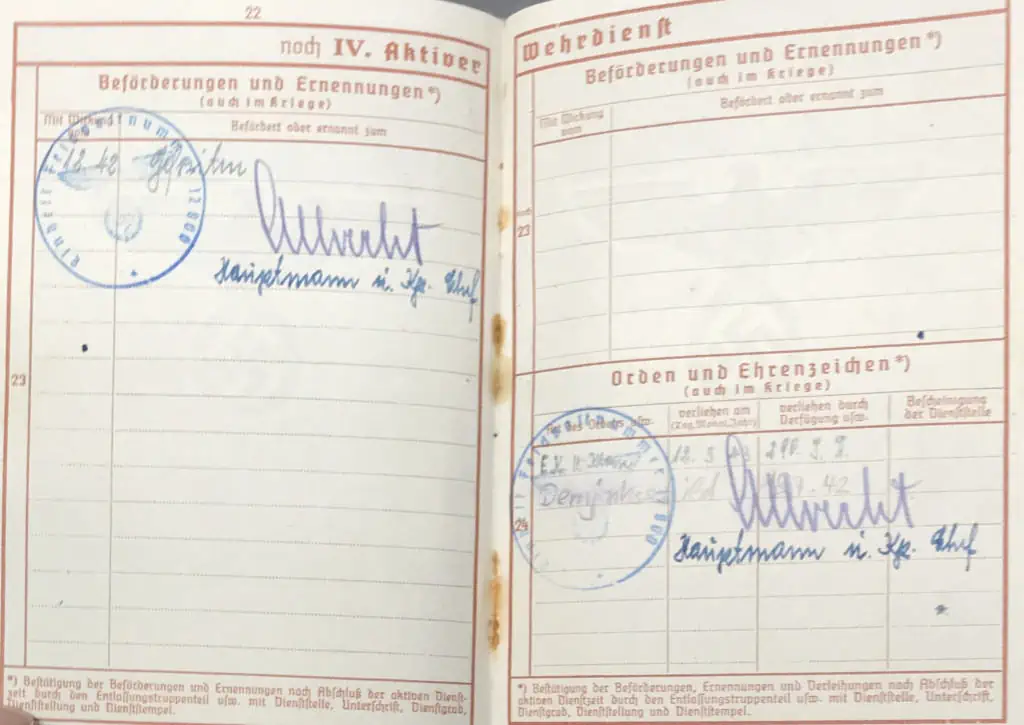 22
noch IV. Aktiver
Beförderungen und Ernennungen*)
(auch im Kriege)
Mit Wirkung vom
Befördert oder ernannt zum
Einheit Feldpostnummer 12800
42
Albrecht
Hauptmann u. Kp. Chef
23
*) Bestätigung der Beförderungen und Ernennungen nach Abschluß der aktiven Dienst-
zeit durch den Entlassungstruppenteil usw. mit Dienststelle, Unterschrift, Dienstgrad,
Dienststellung und Dienststempel.
Wehrdienst
Beförderungen und Ernennungen*)
(auch im Kriege)
Mit Wirkung vom
Befördert oder ernannt zum
noch
23
Orden und Ehrenzeichen*)
(auch im Kriege)
des Ordens usw.
verliehen am
(Tag, Monat, Jahr)
verliehen durch
Verfügung usw.
Bescheinigung
der Dienststelle
Feldpostnummer
E.K. II. Klasse 12.3 290. J. D.
42
Albrecht
24
Hauptmann u. Kp. Chef
*) Bestätigung der Beförderungen, Ernennungen und Verleihungen nach Abschluß der
aktiven Dienstzeit durch den Entlassungstruppenteil usw. mit Dienststelle, Unterschrift,
Dienstgrad, Dienststellung und Dienststempel.